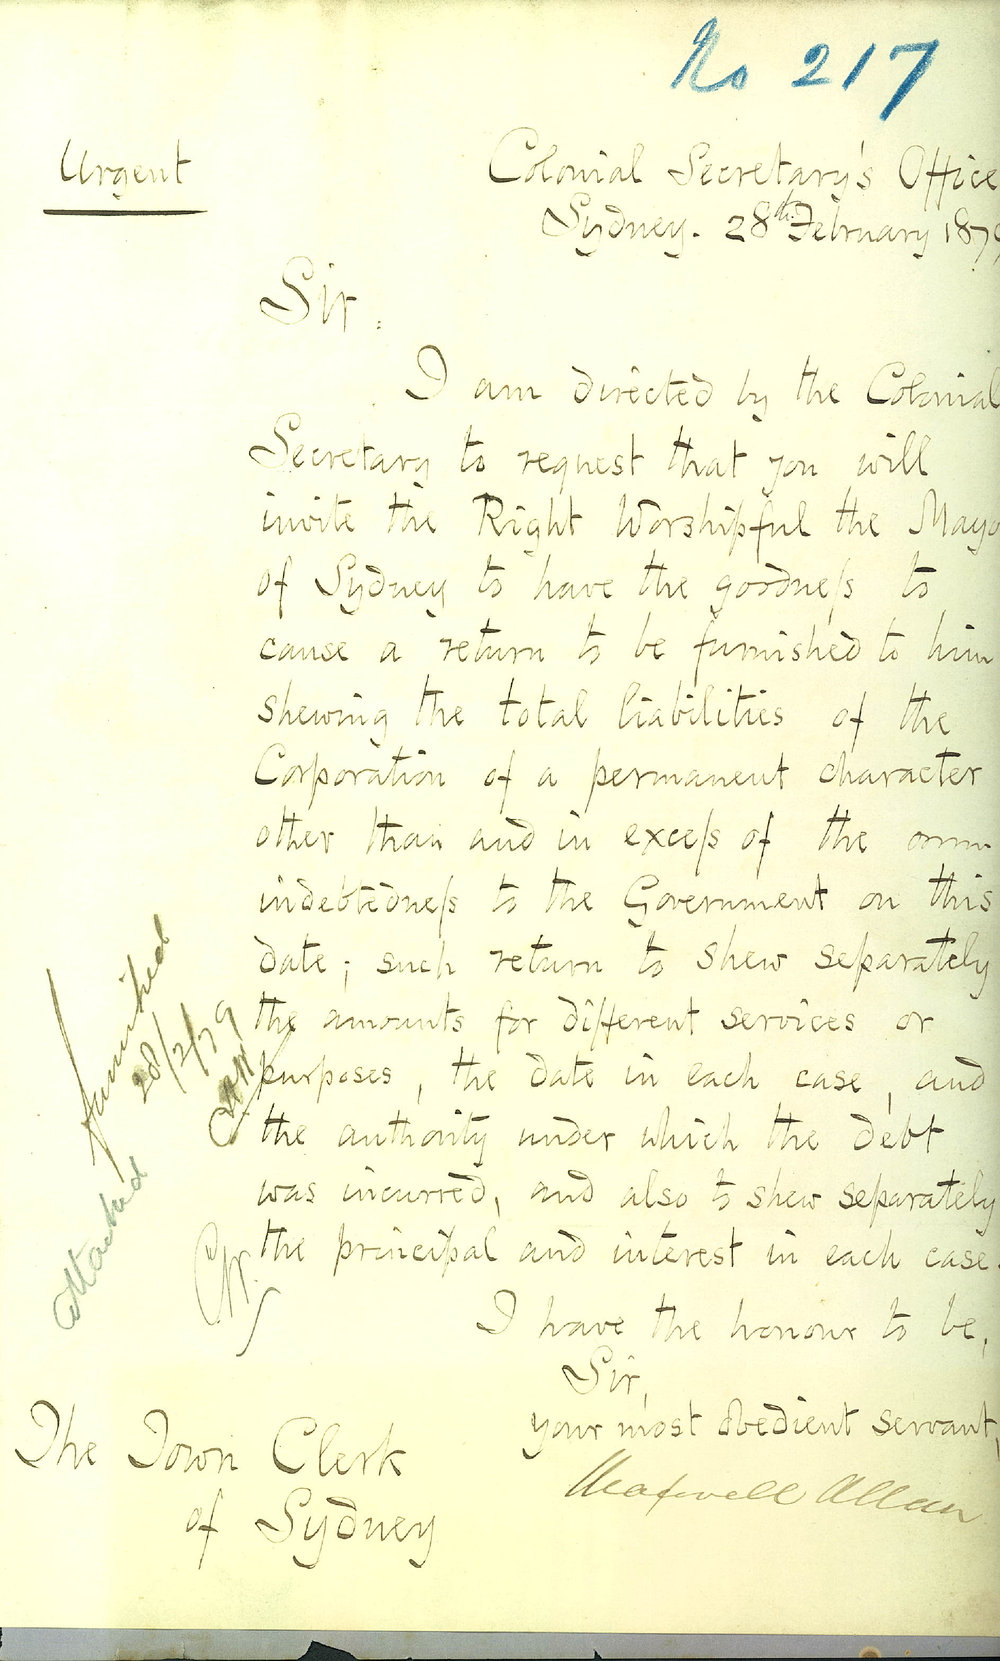 No 217
Urgent
Colonial Secretary's Office
Sydney. 28th February 1879
Sir.
I am directed by the Colonial
Secretary to request that you will
invite the Right Worshipful the Mayo
of Sydney to have the goodness to
cause a return to be furnished to him
shewing the total liabilities of the
Corporation of a permanent character
other than and in excess of the
indebtedness to the Government on this
date; such return to shew separately
the amounts for different services or
purposes, the date in each case, and
the authority under which the debt
was incurred, and also to shew separately
the principal and interest in each case.
I have the honour to be,
Sir,
your most obedient servant,
Maxwell Allan
The Town Clerk
of Sydney
furnished
28/2/79
attached